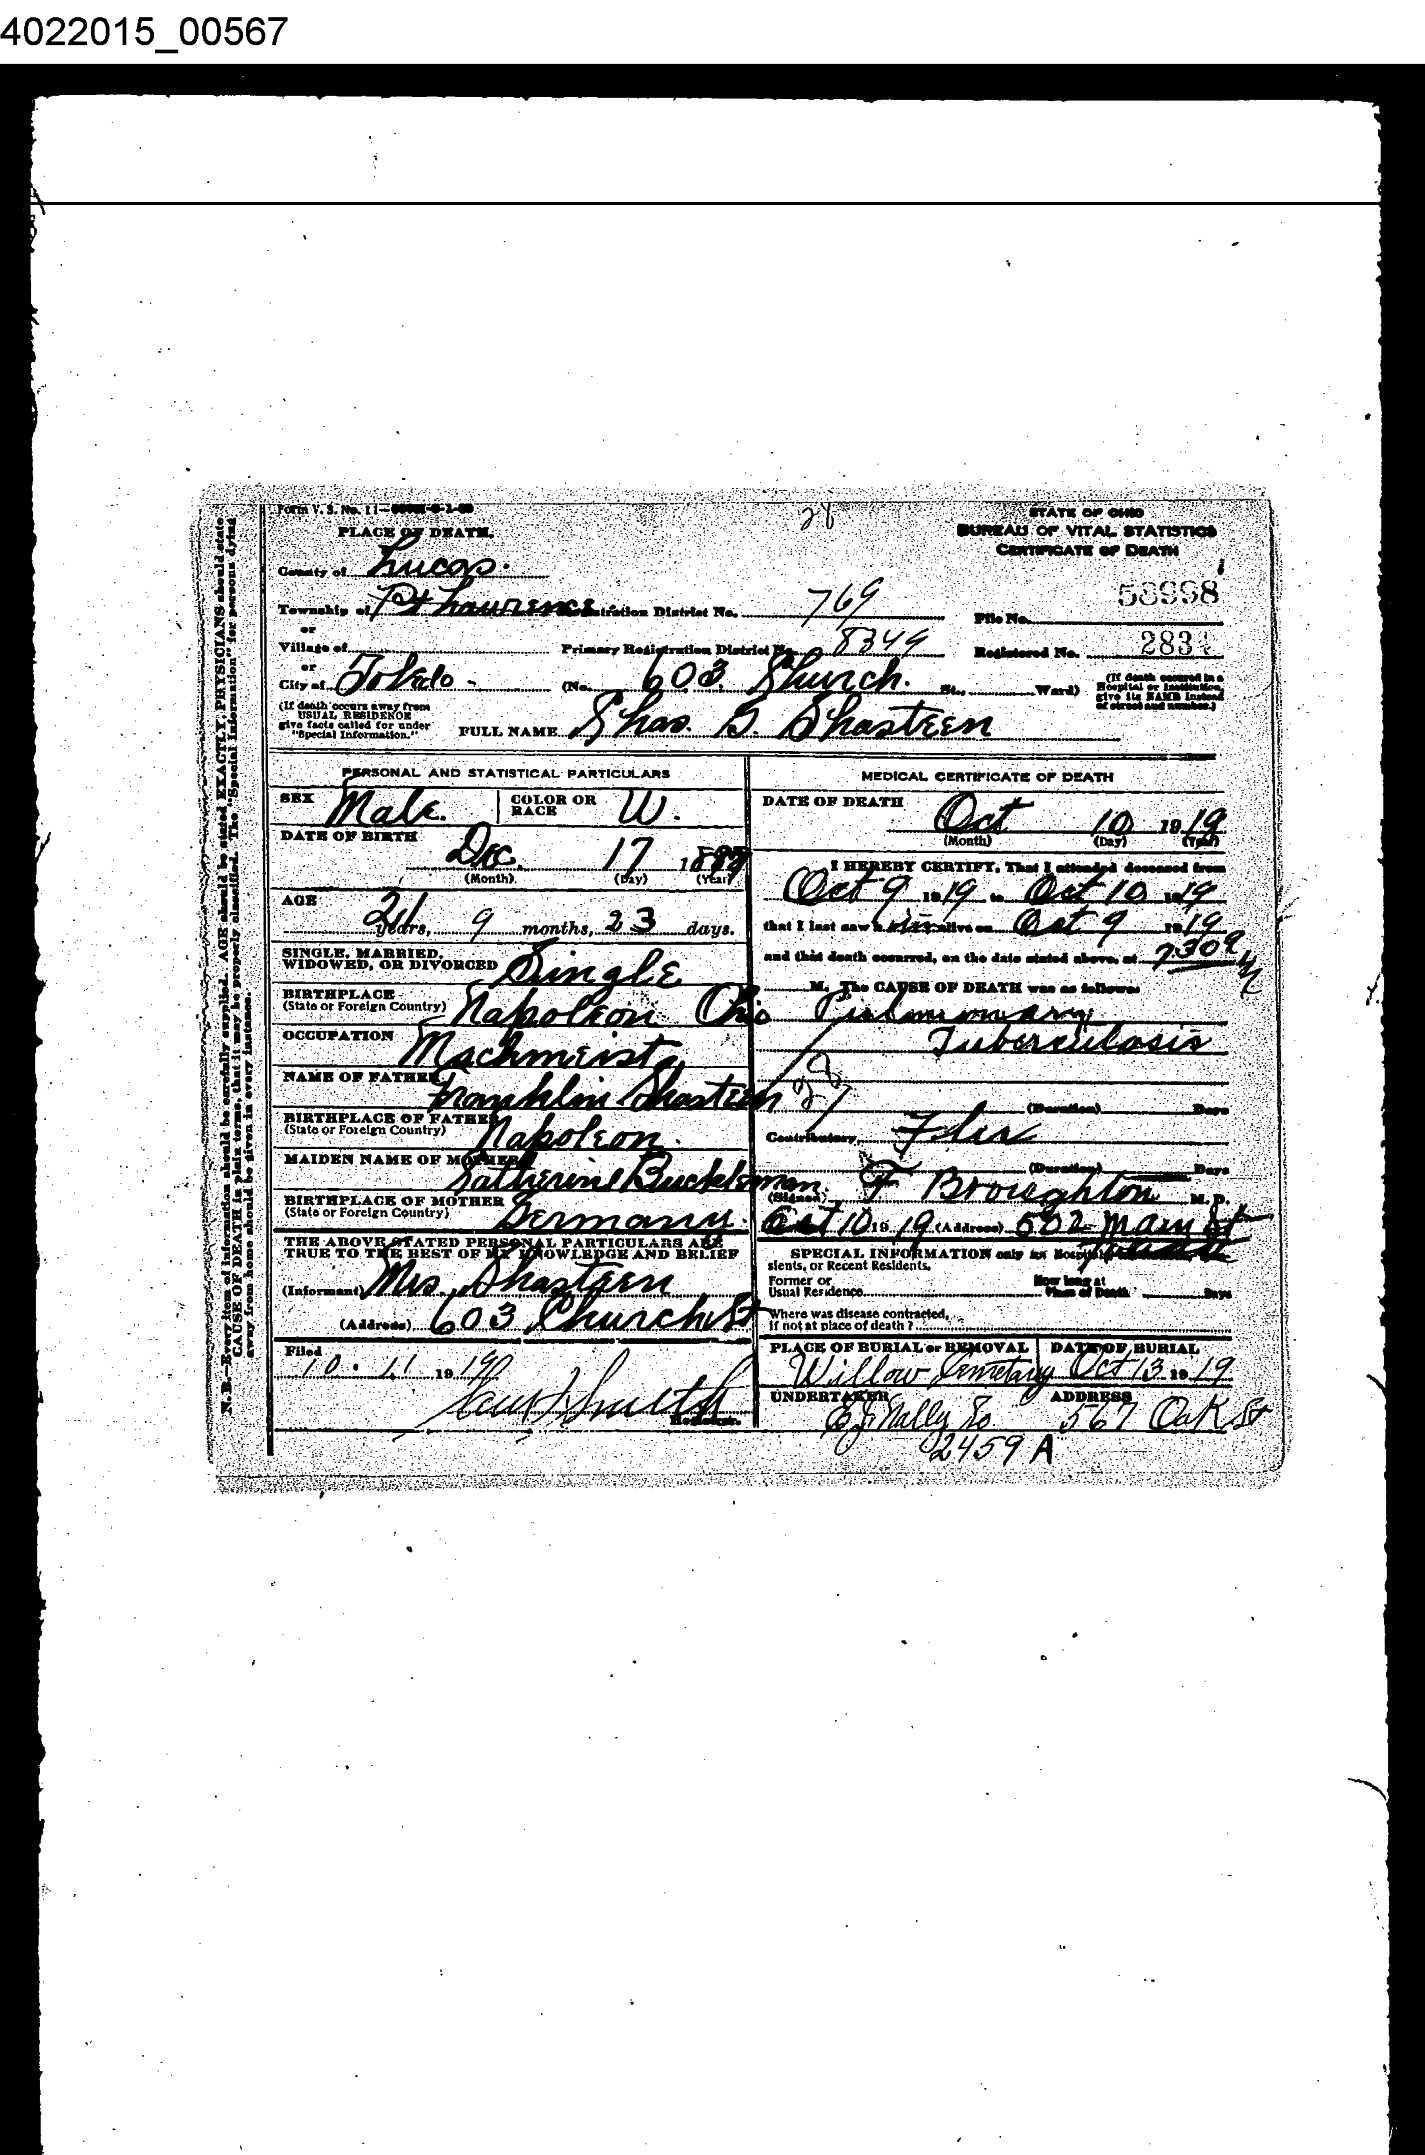 4022015_00567
Form V. S. No. 11—
PLACE OF DEATH.
28
STATE OF OHIO
BUREAU OF VITAL STATISTICS
CERTIFICATE OF DEATH
County of Lucas.
Township of Pt Laurence Registration District No. 769 File No. 58998
or
Village of Primary Registration District No. 8349 Registered No. 2834
or
City of Toledo - (No. 603 Church. St., Ward) (If death occured in a Hospital or Institution, give its NAME instead of street and number.)
(If death occurs away from USUAL RESIDENCE give facts called for under "Special Information.")
FULL NAME Chas. B. Shasteen
PERSONAL AND STATISTICAL PARTICULARS
SEX Male. COLOR OR RACE W.
DATE OF BIRTH Dec. 17
(Month) (Day) (Year)
AGE 21 years, 9 months, 23 days.
SINGLE, MARRIED, WIDOWED, OR DIVORCED Single
BIRTHPLACE (State or Foreign Country) Napoleon Ohio
OCCUPATION Machineist
NAME OF FATHER Franklin Shasteen
BIRTHPLACE OF FATHER (State or Foreign Country) Napoleon.
MAIDEN NAME OF MOTHER Catherine Buckleman.
BIRTHPLACE OF MOTHER (State or Foreign Country) Germany.
THE ABOVE STATED PERSONAL PARTICULARS ARE
TRUE TO THE BEST OF MY KNOWLEDGE AND BELIEF
(Informant) Mrs. Shasteen
(Address) 603 Church St
Filed 10. 11 1919
Registrar.
MEDICAL CERTIFICATE OF DEATH
DATE OF DEATH Oct 10 1919
(Month) (Day) (Year)
I HEREBY CERTIFY, That I attended deceased from
Oct 9 1919 to Oct 10 1919
that I last saw him alive on Oct 9 1919
and that death occurred, on the date stated above, at 7 30 a
M. The CAUSE OF DEATH was as follows:
Pulmonary
Tuberculosis
28
(Duration) Days
Contributory Flu
(Duration) Days
(Signed) F Broughton M. D.
Oct 10 1919 (Address) 502 Main St
SPECIAL INFORMATION only for Hospitals
sients, or Recent Residents.
Former or Usual Residence How long at Place of Death Days
Where was disease contracted,
If not at place of death?
PLACE OF BURIAL or REMOVAL DATE OF BURIAL
Willow Cemetary Oct 13 1919
UNDERTAKER ADDRESS
567 Oak St
2459 A
N. B.—Every item of information should be carefully supplied. AGE should be stated EXACTLY. PHYSICIANS should state
CAUSE OF DEATH in plain terms, that it may be properly classified. The "Special Information" for persons dying
away from home should be given in every instance.